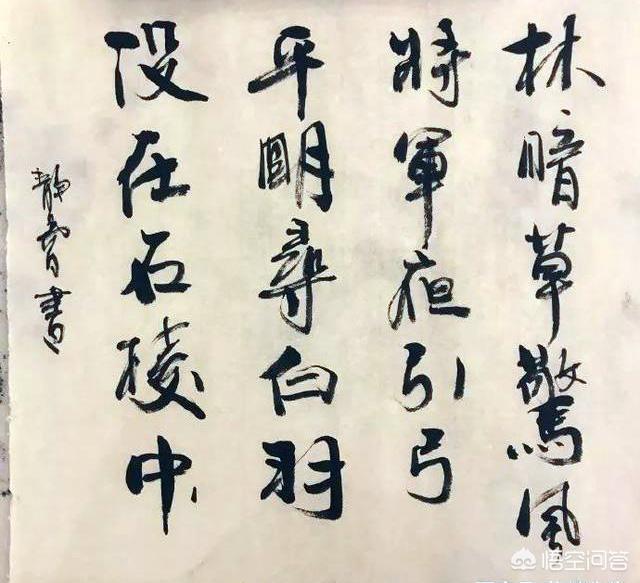 林暗草驚風
將軍夜引弓
平明尋白羽
没在石棱中
靜書
悟空问答